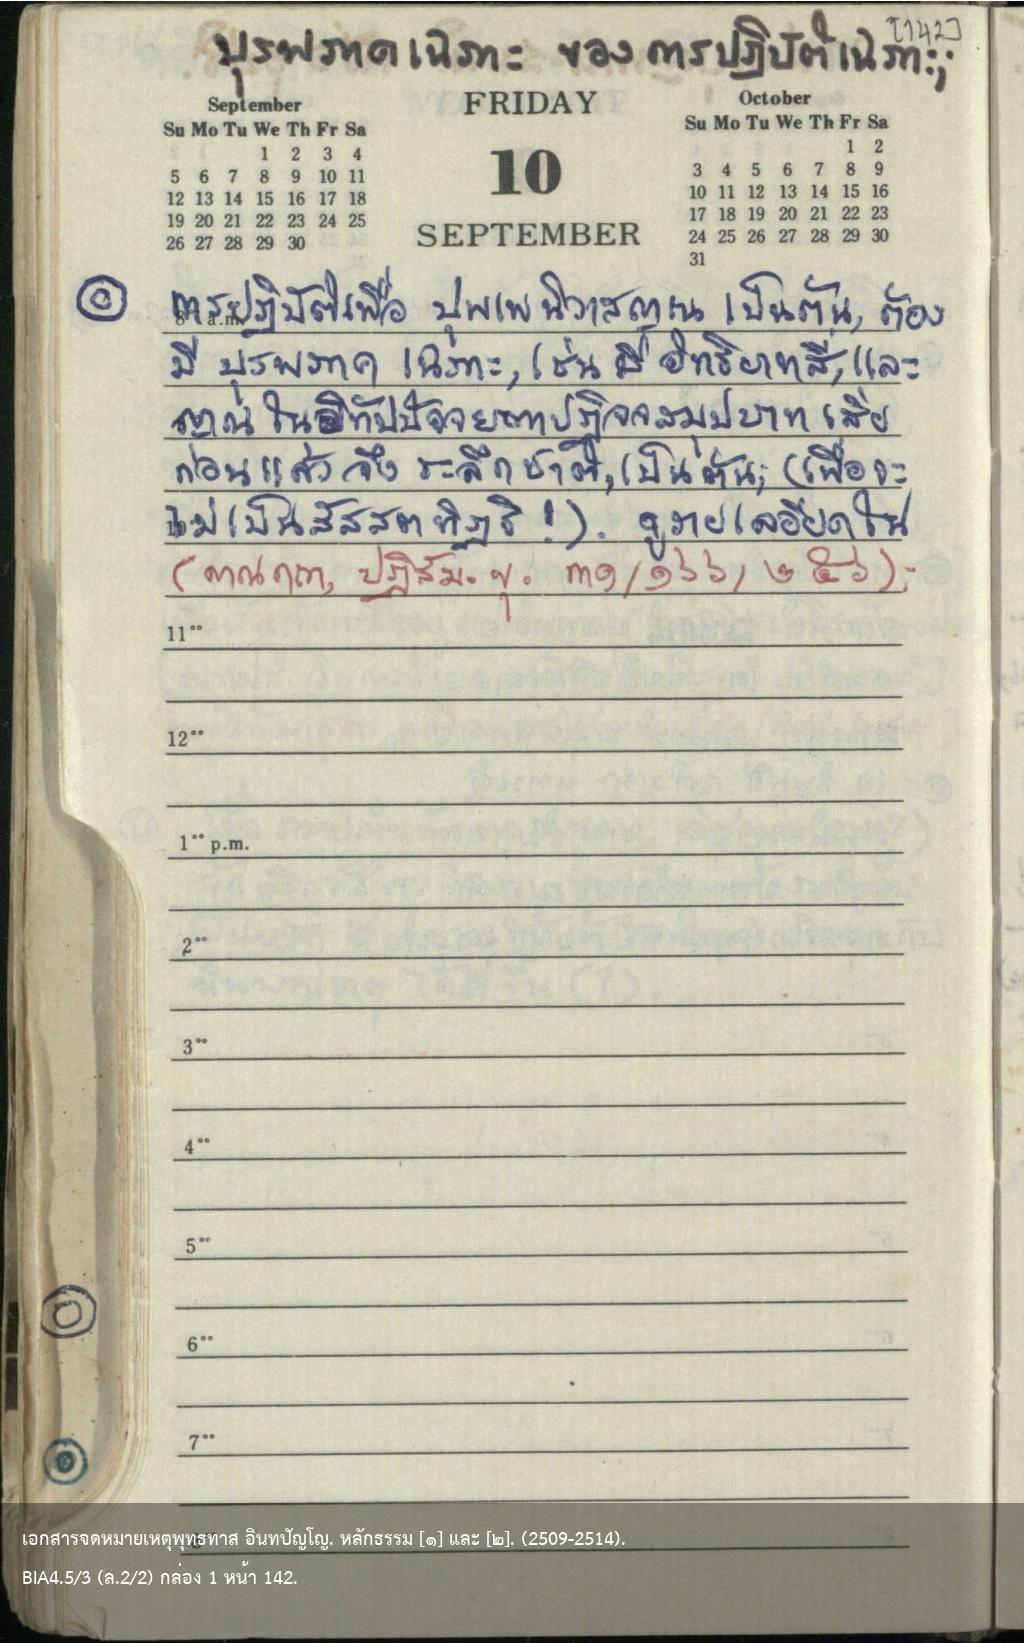 [142]
บุรพภาคเฉพาะ ของการปฏิบัติเฉพาะ;
September
Su Mo Tu We Th Fr Sa
1 2 3 4
5 6 7 8 9 10 11
12 13 14 15 16 17 18
19 20 21 22 23 24 25
26 27 28 29 30
FRIDAY
10
SEPTEMBER
October
Su Mo Tu We Th Fr Sa
1 2
3 4 5 6 7 8 9
10 11 12 13 14 15 16
17 18 19 20 21 22 23
24 25 26 27 28 29 30
31
การปฏิบัติเพื่อ ปุพเพนิวาสญาณ เป็นต้น, ต้อง
มี บุรพภาค เฉพาะ, เช่น มี อิทธิบาทสี่, และ
ญาณ ในอิทัปปัจจยตาปฏิจจสมุปบาท เสีย
ก่อนแล้ว จึง ระลึกชาติ, เป็นต้น; (เพื่อจะ
ไม่เป็นสัสสตทิฏฐิ!). ดูรายเลอียดใน
(ญาณกถา, ปฏิสัม. ขุ. ๓๑/๑๖๖/๒๕๖);
11⁰⁰
12⁰⁰
1⁰⁰ p.m.
2⁰⁰
3⁰⁰
4⁰⁰
5⁰⁰
6⁰⁰
7⁰⁰
เอกสารจดหมายเหตุพุทธทาส อินทปัญโญ. หลักธรรม [๑] และ [๒]. (2509-2514).
BIA4.5/3 (ล.2/2) กล่อง 1 หน้า 142.